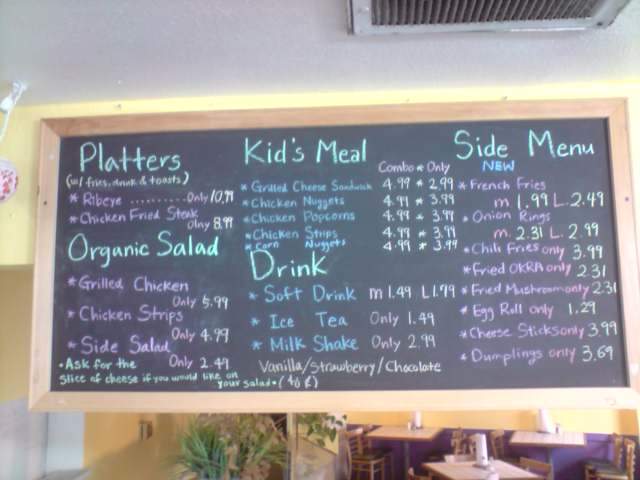 Platters
(w/ fries, drink & toasts)
* Ribeye .......... Only 10.99
* Chicken Fried Steak
Olny 8.99
Organic Salad
* Grilled Chicken
Only 5.99
* Chicken Strips
Only 4.99
* Side Salad
Only 2.49
• Ask for the
slice of cheese if you would like on
your salad • (40 ¢)
Kid's Meal
Combo * Only
* Grilled Cheese Sandwich 4.99 * 2.99
* Chicken Nuggets 4.99 * 3.99
* Chicken Popcorns 4.99 * 3.99
* Chicken Strips 4.99 * 3.99
* Corn Nuggets 4.99 * 3.99
Drink
* Soft Drink m 1.49 L 1.79
* Ice Tea Only 1.49
* Milk Shake Only 2.99
Vanilla/Strawberry/Chocolate
Side Menu
NEW
* French Fries
m 1.99 L 2.49
* Onion Rings
m 2.31 L 2.99
* Chili Fries only 3.99
* Fried OKRA only 2.31
* Fried Mushroom only 2.31
* Egg Roll only 1.29
* Cheese Sticks only 3.99
* Dumplings only 3.69